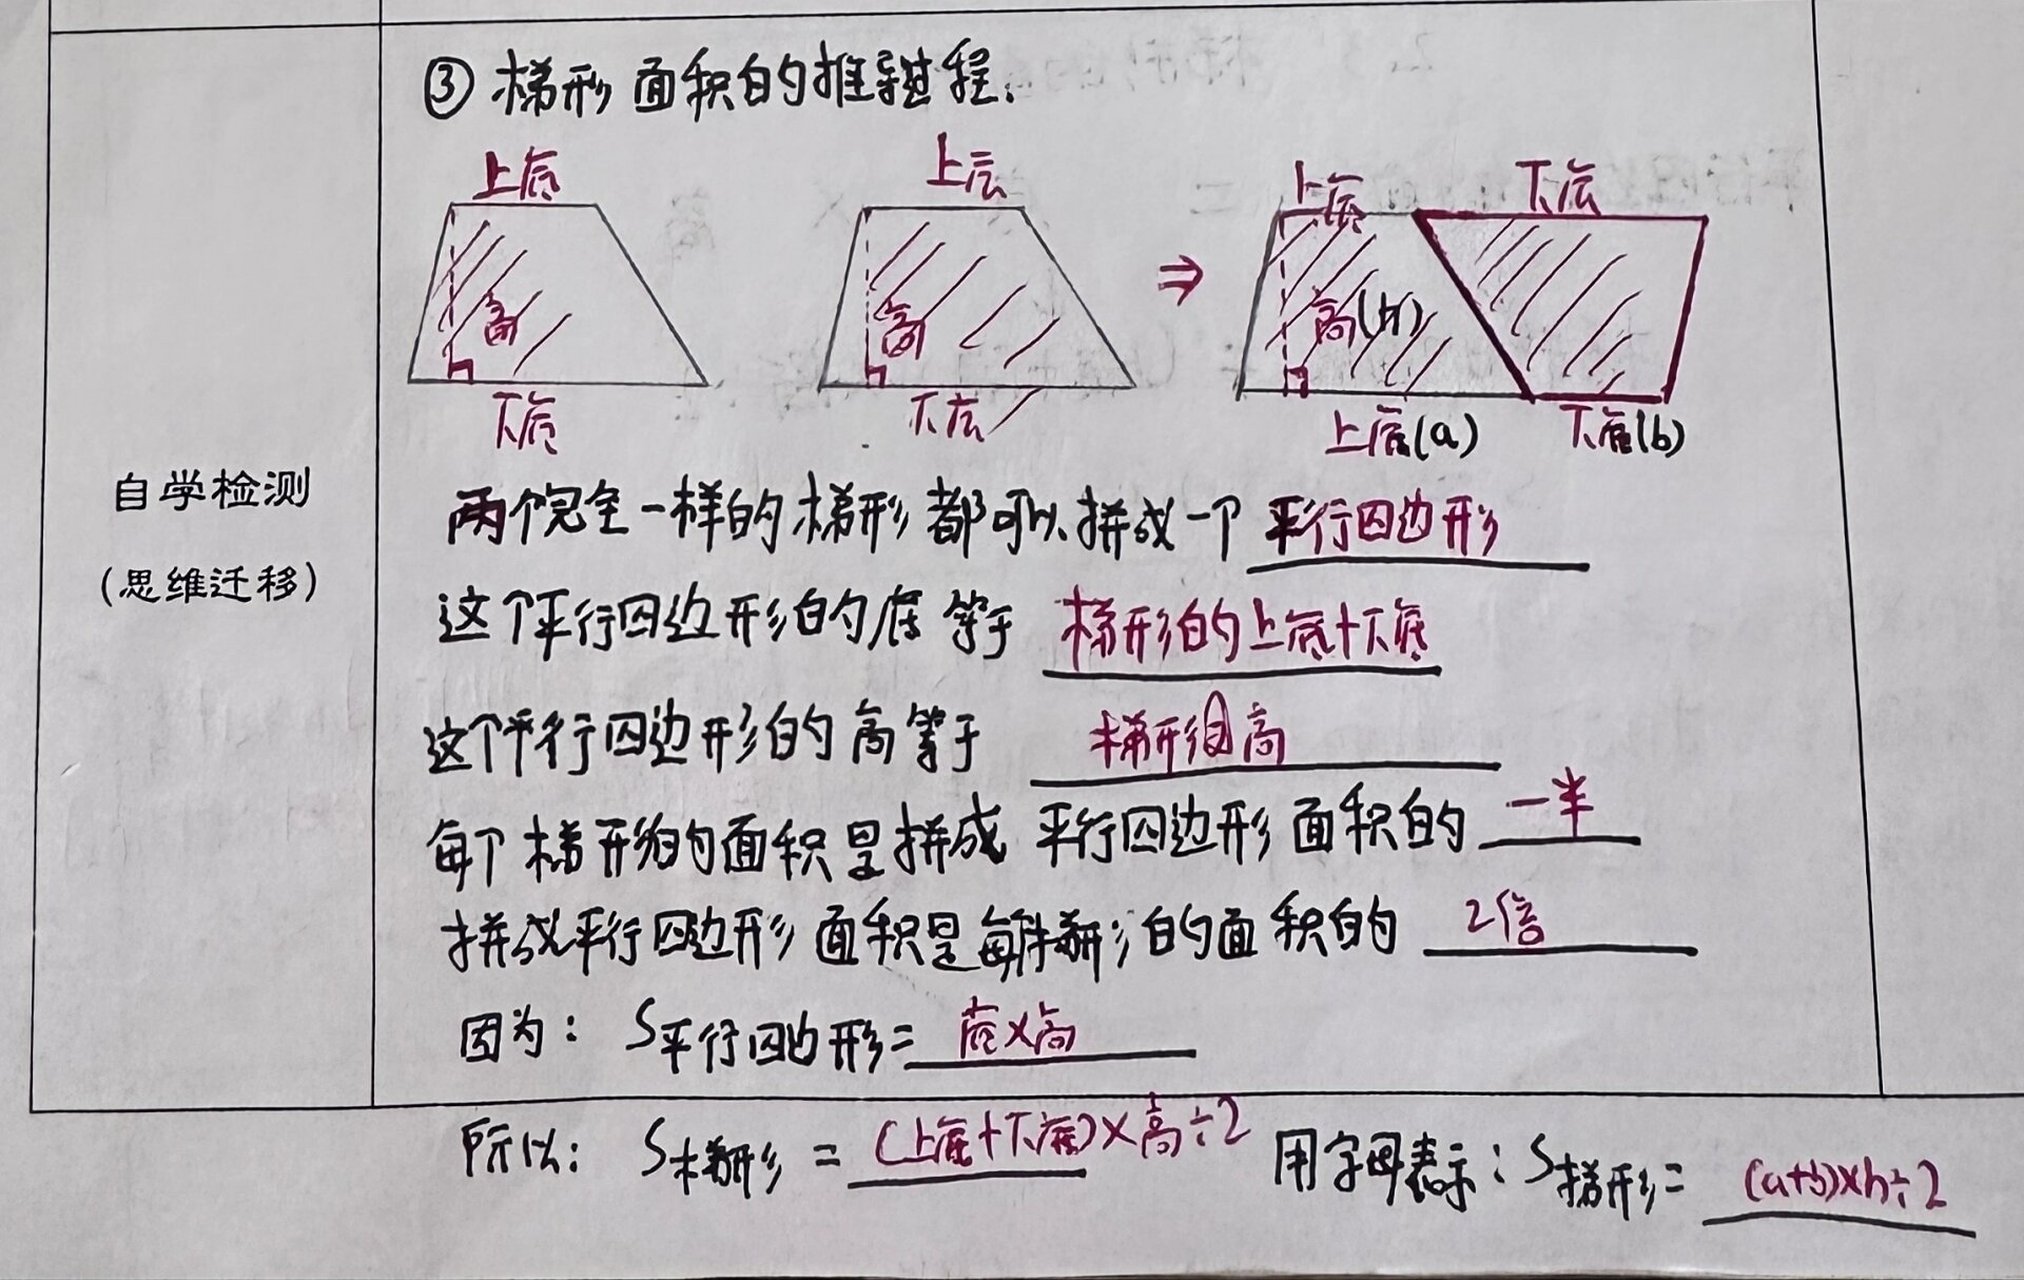 ③梯形面积的推导过程:
上底 上底 上底 下底
高 高 高(h)
下底 下底 上底(a) 下底(b)
自学检测
(思维迁移)
两个完全一样的梯形都可以拼成一个 平行四边形
这个平行四边形的底等于 梯形的上底+下底
这个平行四边形的高等于 梯形的高
每个梯形的面积是拼成平行四边形面积的 一半
拼成平行四边形面积是每个梯形的面积的 2倍
因为: S平行四边形= 底×高
所以: S梯形 = (上底+下底)×高÷2 用字母表示: S梯形= (a+b)×h÷2